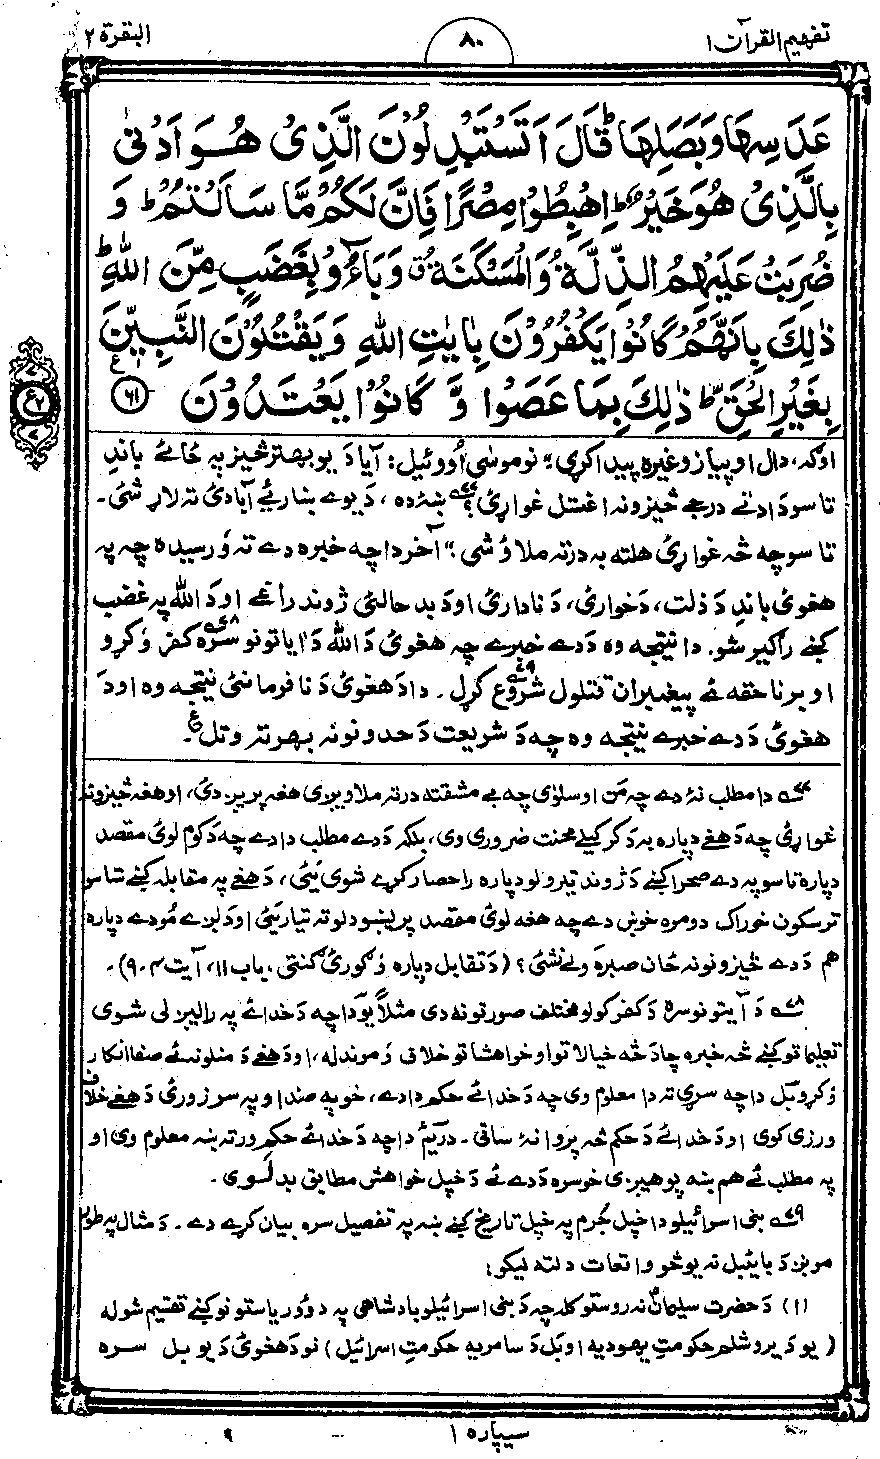 تفهيم القرآن ١
٨٠
البقرة ٢
عَدَسِهَا وَبَصَلِهَا ؕ قَالَ اَتَسْتَبْدِلُوْنَ الَّذِىْ هُوَ اَدْنٰى
بِالَّذِىْ هُوَ خَيْرٌ ؕ اِهْبِطُوْا مِصْرًا فَاِنَّ لَكُمْ مَّا سَاَلْتُمْ ؕ وَ
ضُرِبَتْ عَلَيْهِمُ الذِّلَّةُ وَالْمَسْكَنَةُ ۗ وَبَآءُوْ بِغَضَبٍ مِّنَ اللّٰهِ ؕ
ذٰلِكَ بِاَنَّهُمْ كَانُوْا يَكْفُرُوْنَ بِاٰيٰتِ اللّٰهِ وَيَقْتُلُوْنَ النَّبِيّٖنَ
بِغَيْرِ الْحَقِّ ؕ ذٰلِكَ بِمَا عَصَوْا وَّ كَانُوْا يَعْتَدُوْنَ ٦١
اوګه، دال او پياز وغيره پيدا کړي؛" نو موسٰی أووئيل: آيا د يو بهتر څيز په ځائے باندِ
تاسو د ادنے درجے څيزونه اخستل غواړئ؟ ٧٧ ښهٔ ده، د يوے ښاريے آبادئ ته لاړ شئ۔
تاسو چه څه غواړئ هلته به درته ملاؤ شي؛" آخر دا چه خبره دے ته وَرسيده چه په
هغوئ باندِ دَ ذلت، دَخوارئ، دَ نادارئ اودَ بد حالئ ژوند راغے اودَ الله په غضب
کښے راګير شو. دا نتيجه وه دَدے خبرے چه هغوئ دَ الله دَ اياتونو سره ٧٨ کفر وَکړو
او بر ناحقه ئے پيغمبران قتلول شروع کړل ٧٩۔ دا دَهغوئ دَ نافرمانئ نتيجه وه اودَ
هغوئ دَ دے خبرے نتيجه وه چه دَ شريعت دَحدونونه بهر تر وتل ۔ ع
٧٧ دا مطلب نهٔ دے چه مَن او سلوٰی چه بے مشقته درته ملاويږي هغه پريږدئ، او هغه څيزونه
غواړئ چه دَهغے دپاره به دَکر کيلے محنت ضروري وي، بلکه دَدے مطلب دا دے چه دَکوم لوئ مقصد
دپاره تاسو په دے صحرا کښے دَ ژوند تيرولو دپاره راحصار کړے شوي ئئ، دَهغے په مقابله کښے تاسو
تر سکون خوراک دومره خوښ دے چه هغه لوئ مقصد پريښودلو ته تيار ئئ اودَ لږے مُودے دپاره
هم دَ دے څيزونونه ځان صبره ولے نشئ؟ (دَ تقابل دپاره وُګورئ ګنتی، باب ١١، آيت ٤-٩)۔
٧٨ دَ آيتونو سره دَ کفر کولو مختلف صورتونه دي مثلاً يو دا چه دَ خدائے په راليږلی شوي
تعليماتو کښے څه خبره چا دَ خپه خيالاتو او خواهشاتو خلاف وموندله، اودَهغے دَ منلونه ئے صفا انکار
وُکړو. بَل دا چه سړي ته دا معلوم وي چه دَ خدائے حکم دا دے، خو په ضد او په سرزورئ دَهغے خلاف
ورزي کوي اودَ خدائے دَ حکم څه پروا نهٔ ساتي۔ دريم دا چه دَ خدائے حکم ورته ښه معلوم وي او
په مطلب ئے هم ښه پوهيږي خو سره دَدے ئے دَ خپل خواهش مطابق بدلَوي۔
٧٩ بني اسرائيلو دا خپل جُرم په خپل تاريخ کښے ښه په تفصيل سره بيان کړے دے۔ دَ مثال په طور
مونږ دَ بائيبل نه يو څو واقعات دلته ليکو:
(١) دَ حضرت سليمانؑ نه روستو کله چه دَ بني اسرائيلو بادشاهي په دوُو رياستونو کښے تقسيم شوله
(يو دَ يروشلم حکومتِ يهوديه او بَل دَ سامريه حکومتِ اسرائيل) نو دَهغوئ دَ يو بل سره
سيپاره ١
٩